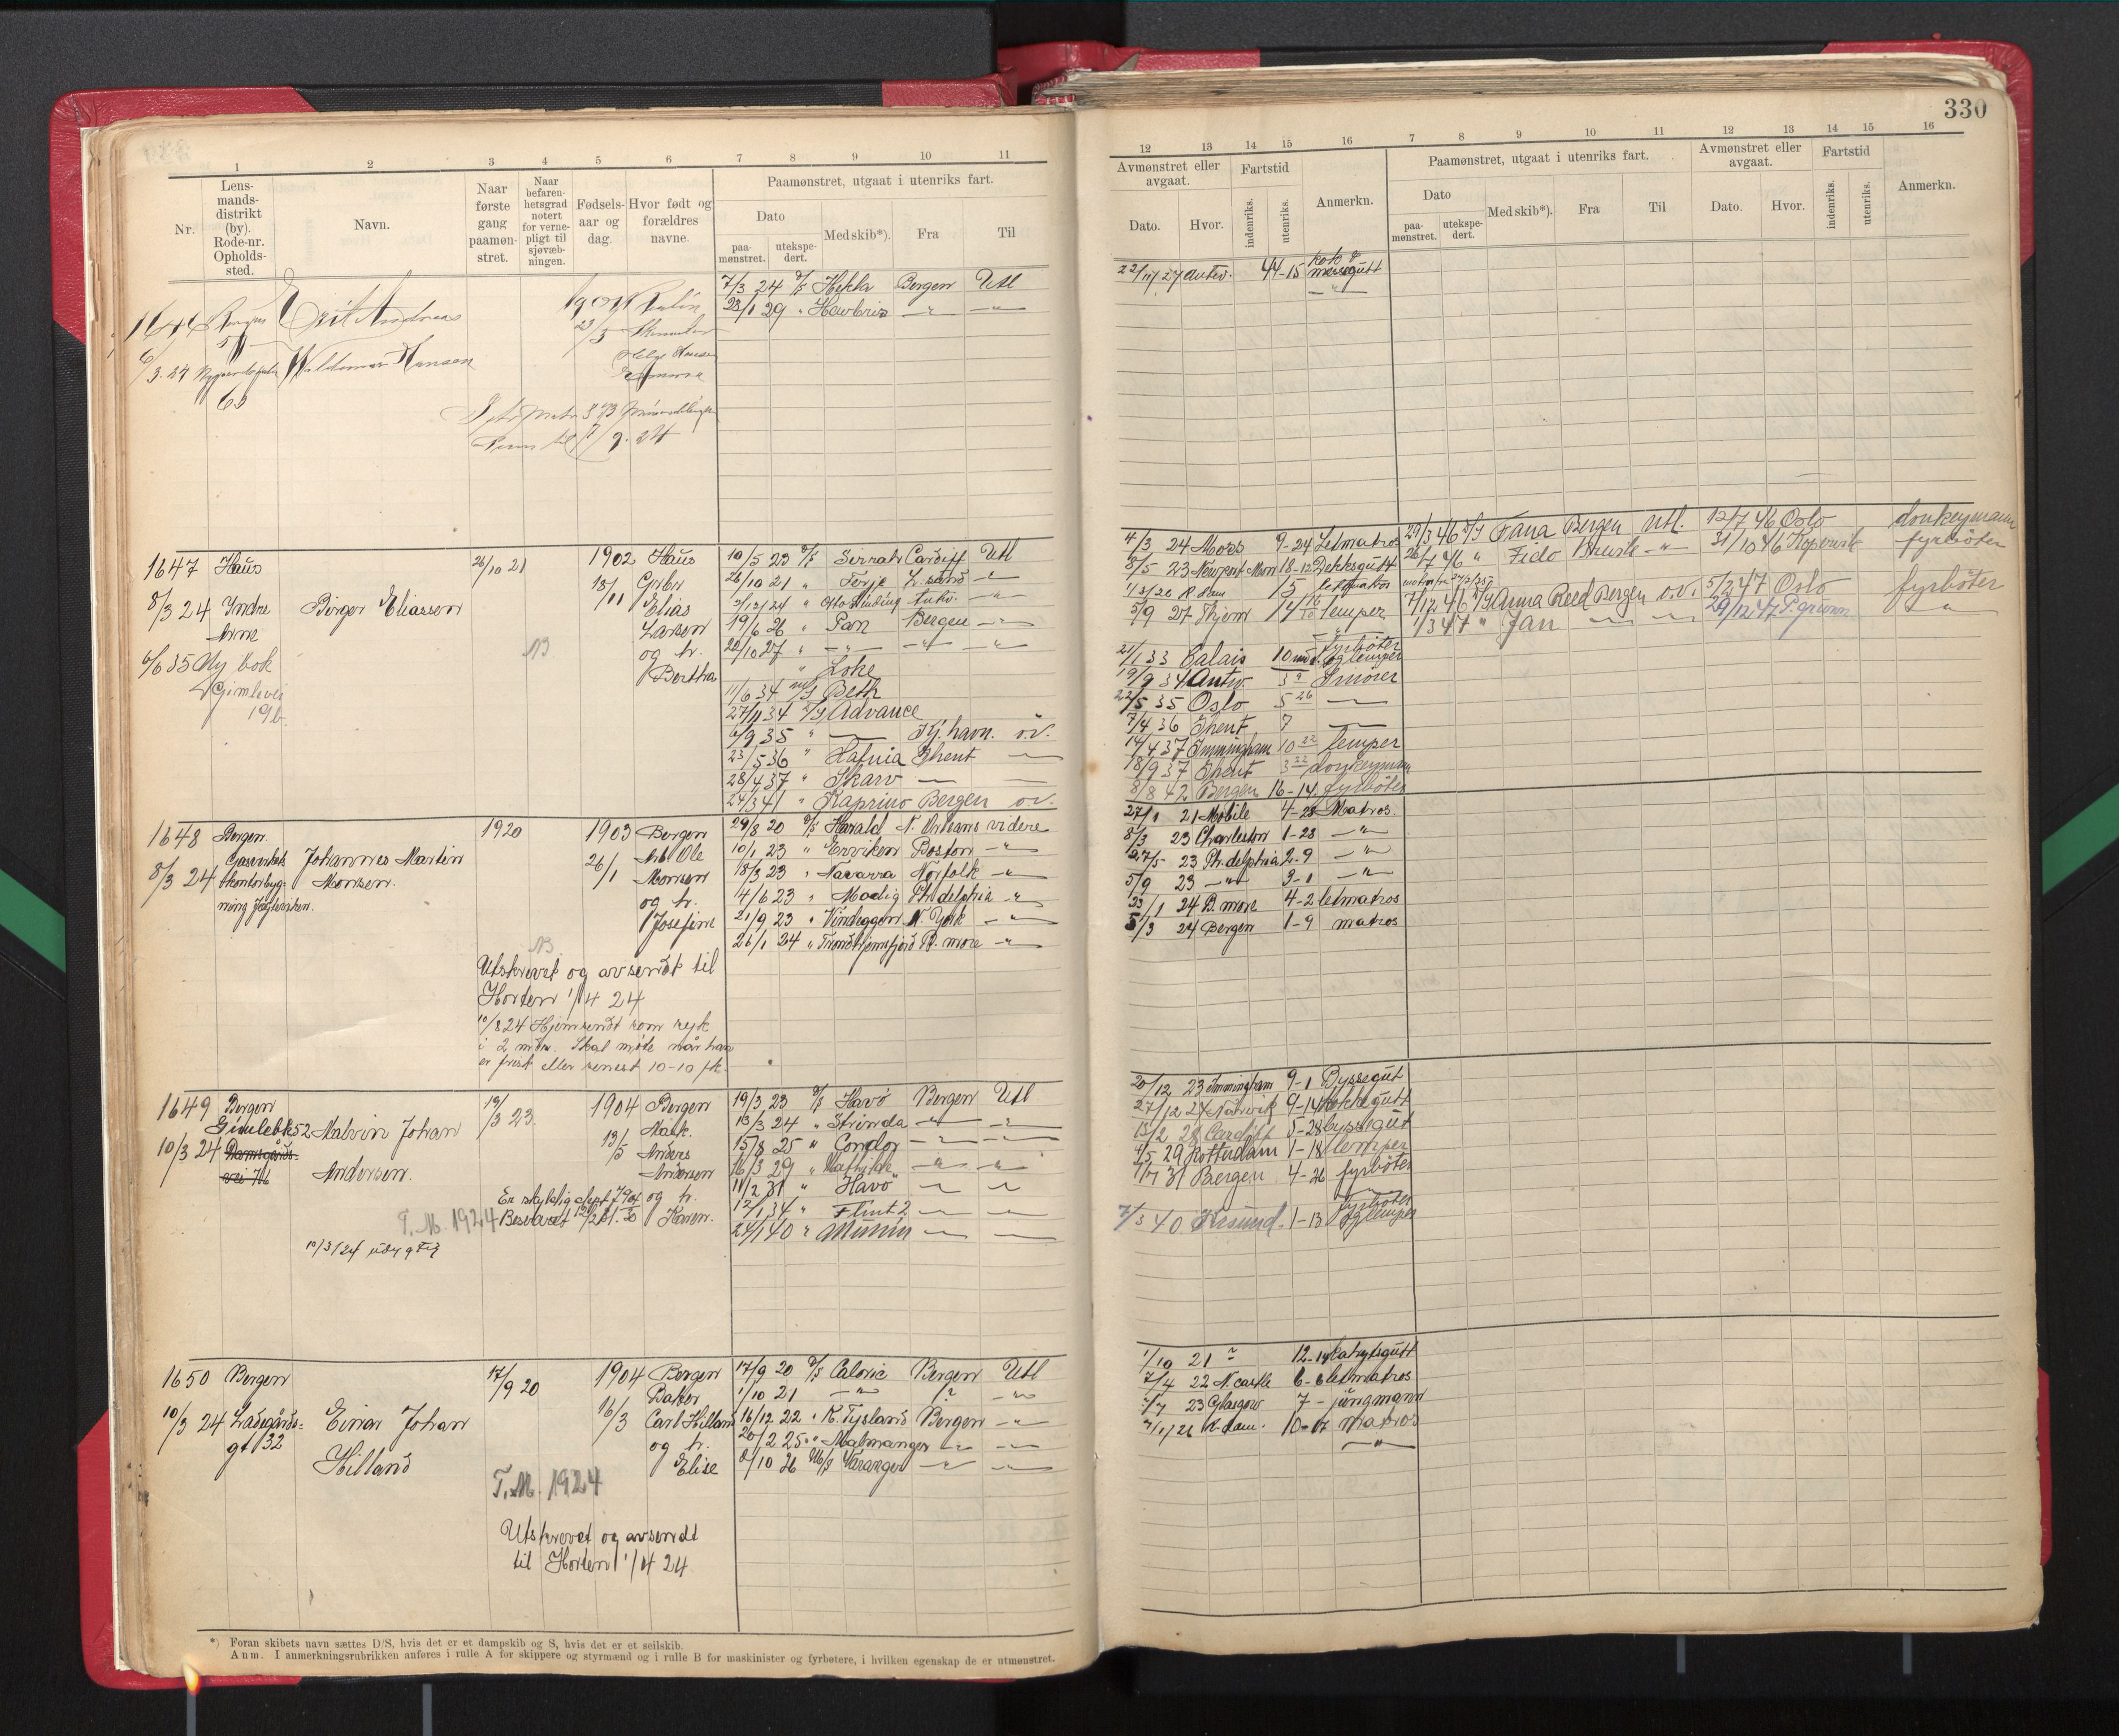 330
1 2 3 4 5 6 7 8 9 10 11
Nr.
Lens-
mands-
distrikt
(by).
Rode-nr.
Opholds-
sted.
Navn.
Naar
første
gang
paamøn-
stret.
Naar
befaren-
hetsgrad
notert
for verne-
pligt til
sjøvæb-
ningen.
Fødsels-
aar og
dag.
Hvor født og
forældres
navne.
Paamønstret, utgaat i utenriks fart.
Dato
paa-
mønstret.
utekspe-
dert.
Med skib*).
Fra
Til
12 13 14 15 16 7 8 9 10 11 12 13 14 15 16
Avmønstret eller
avgaat.
Dato.
Hvor.
Fartstid
indenriks.
utenriks.
Anmerkn.
Paamønstret, utgaat i utenriks fart.
Dato
paa-
mønstret.
utekspe-
dert.
Med skib*).
Fra
Til
Avmønstret eller
avgaat.
Dato.
Hvor.
Fartstid
indenriks.
utenriks.
Anmerkn.
Bergen
Andreas
Hansen
7/3 24 D/S Hekla Bergen Utl
23/1 29 " —"— —"—
22/11 27 Antw. 44-15 Kok &
messegutt
1647 Haus
8/3 24 Indre
Arne
6/6 35 Ny bok
Gimlevei
19b
Birger Eliassen
26/10 21
NB
1902 Haus
18/11
Elias
Larsen
og h.
Bertha
10/5 23 D/S Cardiff Utl
26/10 21 " Terje —"—
19/6 26 " Pan Bergen —"—
22/10 27 " —"— —"— —"—
" Loke
11/6 34 M/S Beth
27/11 34 D/S Advance
6/9 35 " — Kj.havn. o.v.
23/5 36 " Hafnia Ghent —
28/4 37 " Skarv — —
24/3 41 " Kaprino Bergen o.v.
4/3 24 Moss 9-24 Letmatros
8/5 23 Newport Mon 18-12 Dekksgutt
5/9 27 lemper
21/1 33 Calais 10 mnd fyrböter
og lemper
19/9 34 Antw. 3 Smörer
22/5 35 Oslo 5 26 —
7/4 36 Ghent 7 —
14/4 37 Immingham 10 22 lemper
18/9 37 Ghent 3 22 donkeymann
8/8 42 Bergen 16-14 fyrböter
29/3 46 D/S Fana Bergen Utl. 12/7 46 Oslo donkeymann
26/7 46 " Fido —"— 31/10 46 Kopervik fyrböter
7/12 46 D/S Anna Reed Bergen o.v. 5/2 47 Oslo fyrböter
1/3 47 " Jan — — 29/12 47 P.grunn "
1648 Bergen
8/3 24 Gasverkets
kontorbyg-
ning
Johannes Martin
Monsen.
1920
1903 Bergen
26/1 Arb. Ole
Monsen
og h.
Josefine
29/8 20 D/S Harald N. Orleans videre
10/1 23 " Erviken Boston —"—
18/3 23 " Navarra Norfolk —"—
14/6 23 " Modig Ph.delphia —"—
21/9 23 " Vindeggen N. York —"—
26/1 24 " Trondhjemsfjord B. more —"—
27/1 21 Mobile 4-28 Matros
8/3 23 Charleston 1-28 —"—
27/5 23 Ph.delphia 2-9 —"—
5/9 23 —"— 3-1 —"—
23/1 24 B. more 4-2 letmatros
5/3 24 Bergen 1-9 matros
NB
Utskrevet og avsendt til
Horten 1/4 24
10/8 24 Hjemsendt som syk
i 2 mdr. Skal møte når han
er frisk eller senest 10-10 fk.
1649 Bergen
Gimlebk 52
10/3 24 Damsgårds-
vei 76
Malvin Johan
Andersen.
19/3 23.
1904 Bergen
13/5 Mask.
Anders
Andersen
og h.
Karen.
T.M. 1924
19/3 23 D/S Havö Bergen Utl
13/3 24 " Strinda —"— —"—
15/8 25 " Condor —"— —"—
16/3 29 " Mathilde —"— —"—
11/2 31 " Havö — —
12/1 34 " Flint 2 — —
24/1 40 " Munin — —
20/12 23 Immingham 9-1 Byssegut
27/12 24 Narvik 9-14 Kokkegutt
13/2 28 Cardiff 5-28 byssegut
4/5 29 Rotterdam 1-18 lemper
1/7 31 Bergen 4-26 fyrböter
7/3 40. Krsund. 1-13 fyrböter
og lemper
1650 Bergen
10/3 24 Ladegårds-
gt 132
Einar Johan
Hilland
17/9 20
1904 Bergen
16/3 Baker
Carl Hilland
og h.
Elise
17/9 20 D/S Caloric Bergen Utl
1/10 21 —"— ? —"—
16/12 22 " K. Tysland Bergen —"—
20/2 25 " Malmanger —"— —"—
2/10 26 M/S Varanger —"— —"—
1/10 21 ? 12-14 dekksgutt
7/4 22 N.castle 6-6 letmatros
23 Glasgow 7- jungmann
26 R.dam. 10-17 matros
—"—
T.M. 1924
Utskrevet og avsendt
til Horten 1/4 24
*) Foran skibets navn sættes D/S, hvis det er et dampskib og S, hvis det er et seilskib.
Anm. I anmerkningsrubrikken anføres i rulle A for skippere og styrmænd og i rulle B for maskinister og fyrbøtere, i hvilken egenskap de er utmønstret.